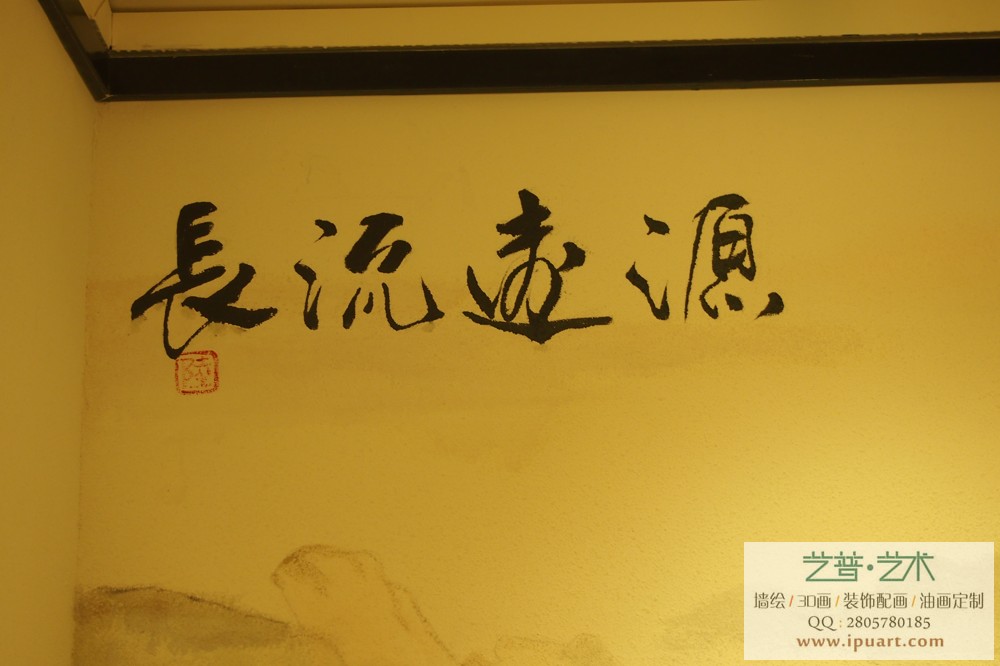 源遠流長
艺普·艺术
墙绘/3D画/装饰配画/油画定制
QQ:2805780185
www.ipuart.com